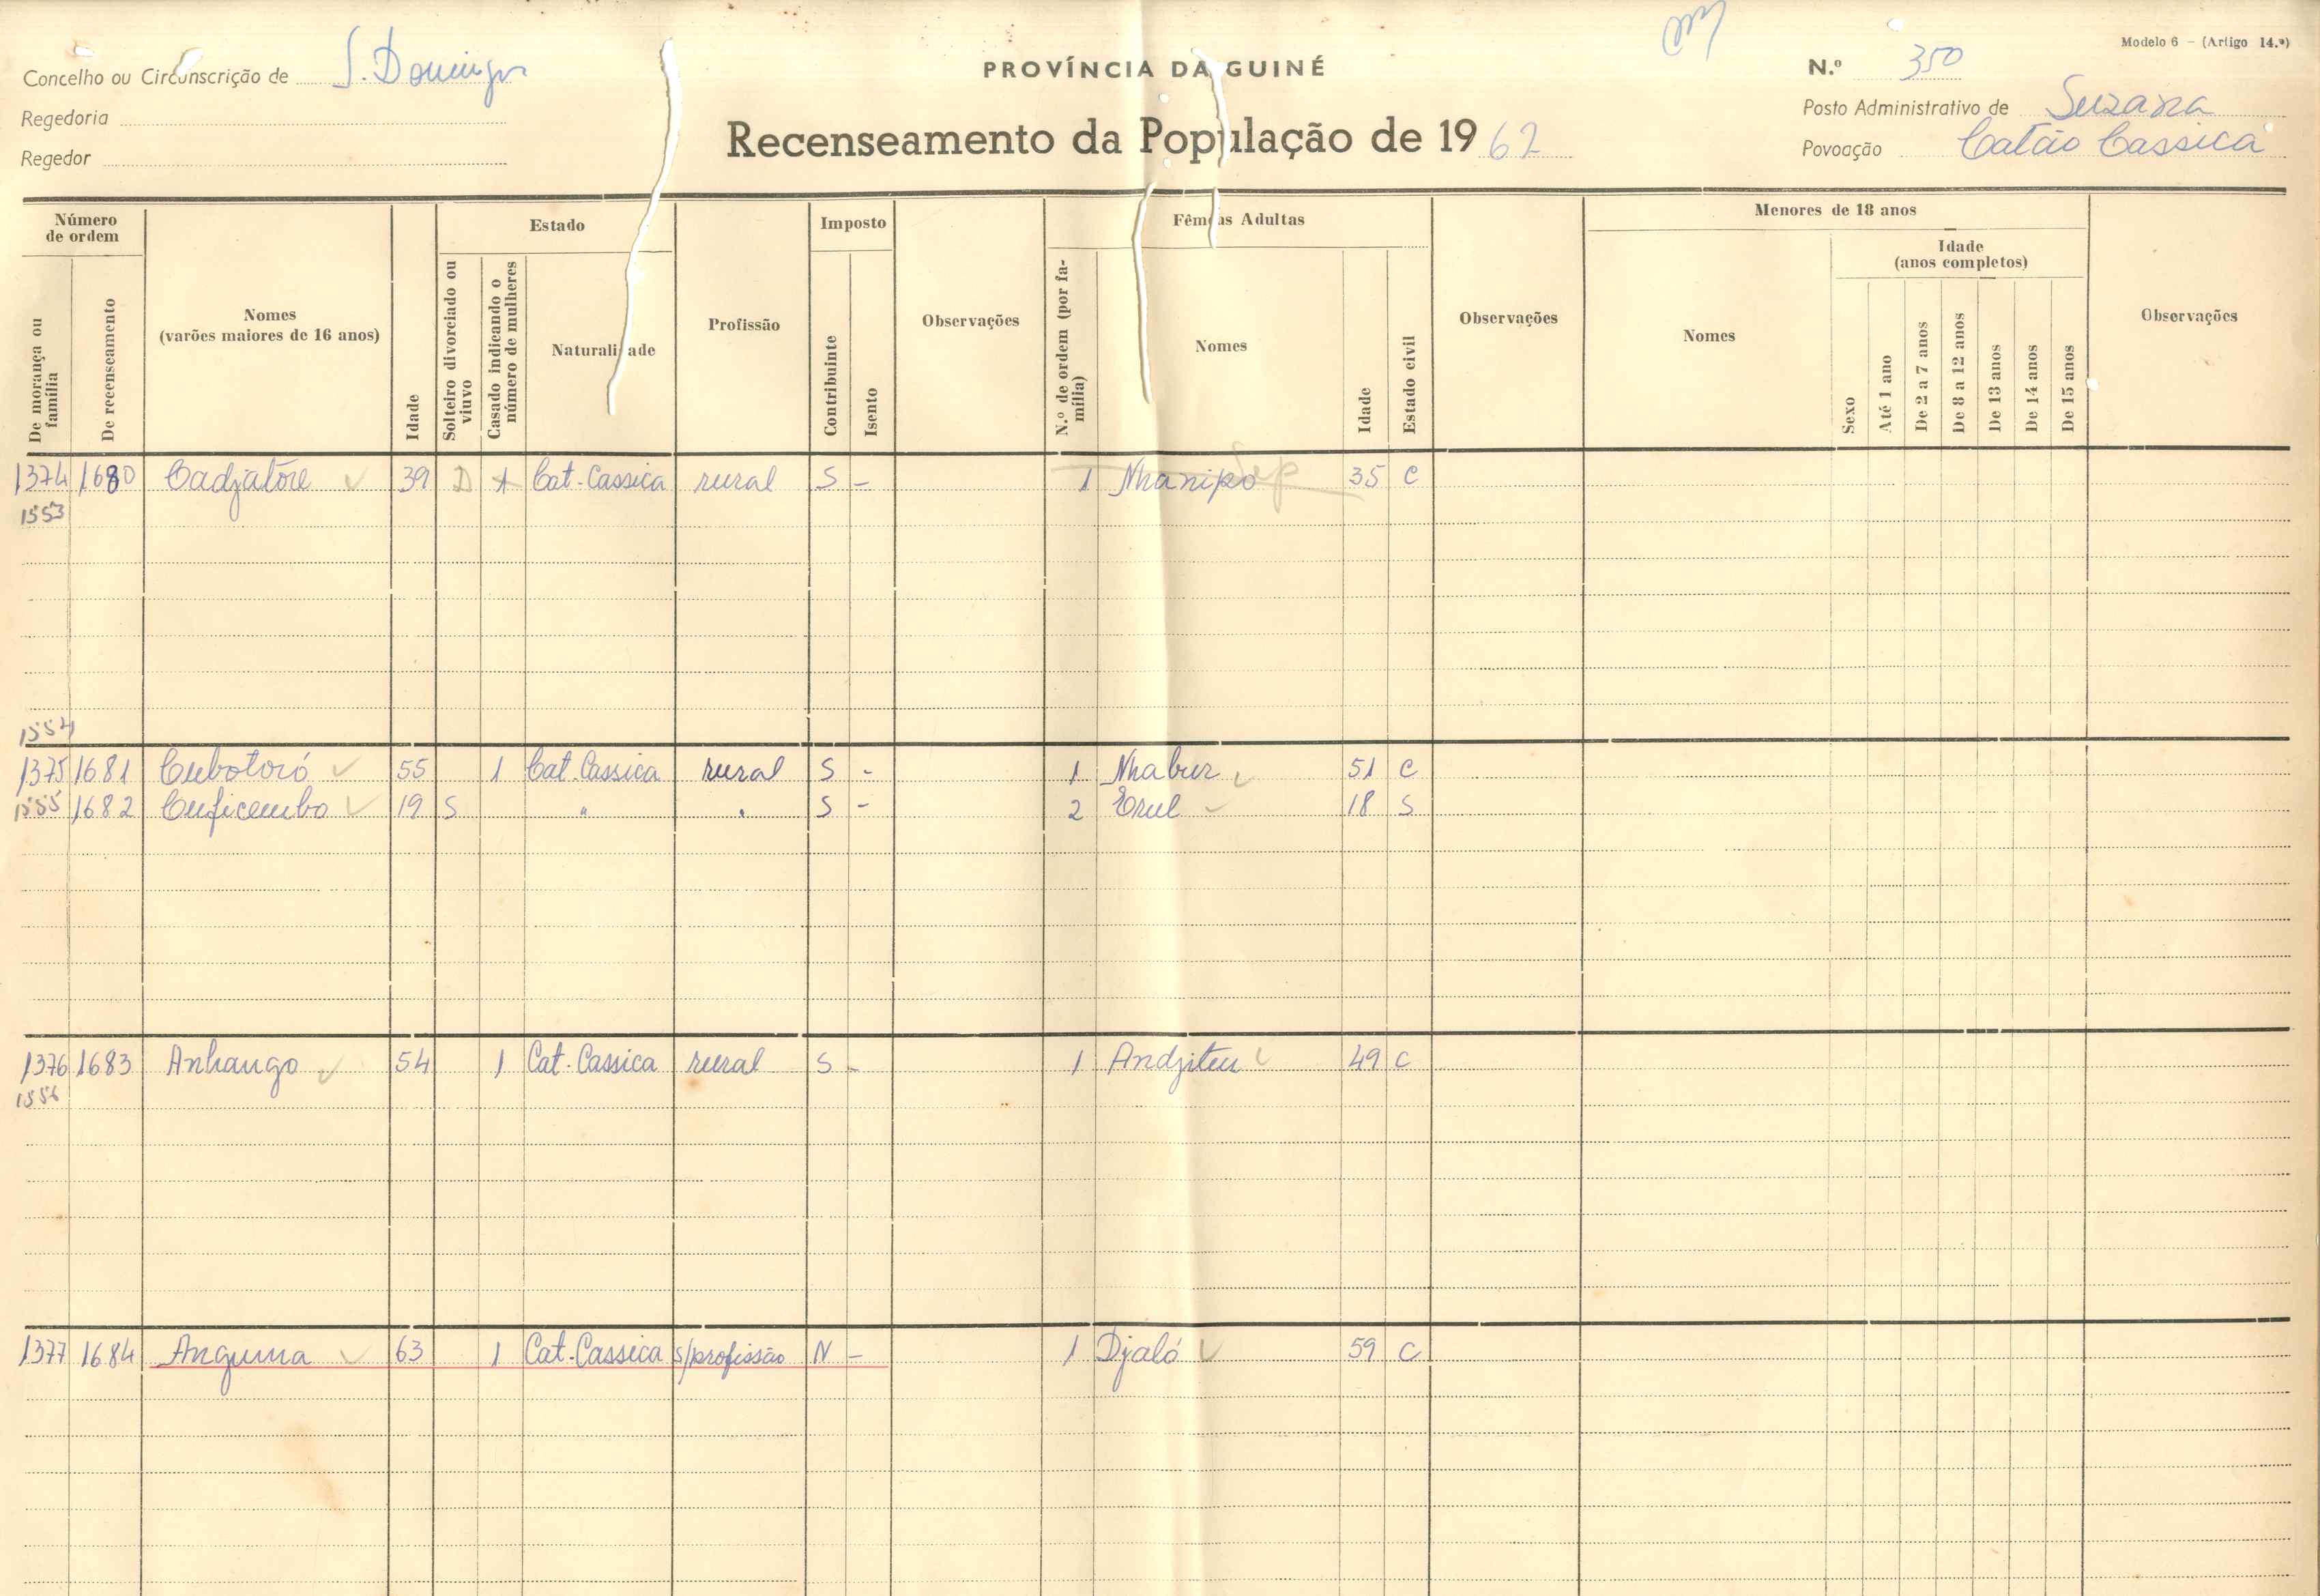 Modelo 6 - (Artigo 14.º)
Concelho ou Circunscrição de S. Domingos
PROVÍNCIA DA GUINÉ
N.º 350
Regedoria
Posto Administrativo de Suzana
Regedor
Recenseamento da População de 1962
Povoação Catão Cassica
Número de ordem
De morança ou família
De recenseamento
Nomes
(varões maiores de 16 anos)
Idade
Estado
Solteiro divorciado ou viuvo
Casado indicando o número de mulheres
Naturalidade
Profissão
Imposto
Contribuinte
Isento
Observações
Fêmeas Adultas
N.º de ordem (por família)
Nomes
Idade
Estado civil
Observações
Menores de 18 anos
Nomes
Sexo
Idade
(anos completos)
Até 1 ano
De 2 a 7 anos
De 8 a 12 anos
De 13 anos
De 14 anos
De 15 anos
Observações
1374 1680 Cadjatore 39 D Cat-Cassica rural S - 1 Nhanipo Sep 35 C
1553
1554
1375 1681 Cubotoró 55 1 Cat-Cassica rural S - 1 Nhabur 51 C
1555 1682 Cuficumbo 19 S " " S - 2 Erul 18 S
1376 1683 Anhango 54 1 Cat-Cassica rural S - 1 Andjiteu 49 C
1556
1377 1684 Anguma 63 1 Cat-Cassica s/profissão N - 1 Djaló 59 C